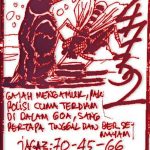 GAJAH MENGAMUK, PAK
POLISI CUMA TERDIAM
DI DALAM GOA, SANG
PERTAPA TINGGAL DAN BERSE
MAYAM
JAGA: 70-45-66